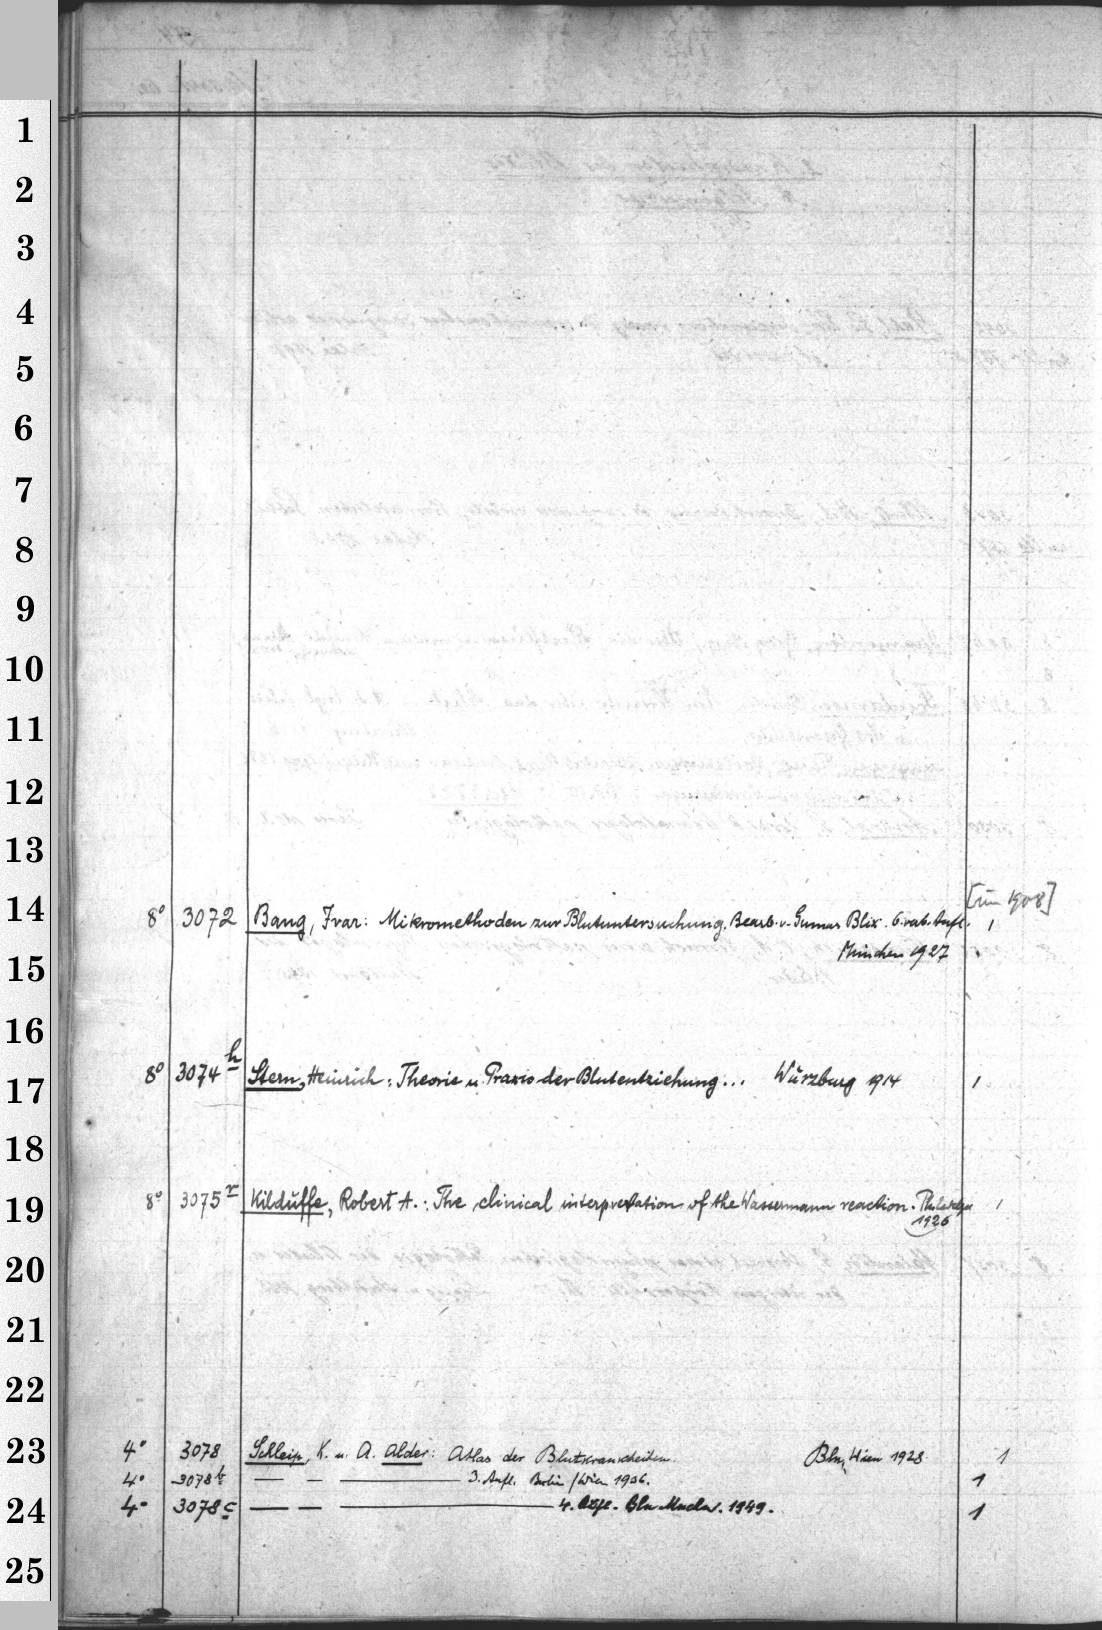 1
2
3
4
5
6
7
8
9
10
11
12
13
14
15
16
17
18
19
20
21
22
23
24
25
[um 1908]
8° 3072 Bang, Ivar: Mikromethoden zur Blutuntersuchung. Bearb. v. Gunnar Blix. 6. verb. Aufl. 1
München 1927
8° 3074 h Stern, Heinrich: Theorie u. Praxis der Blutentziehung... Würzburg 1914 1
8° 3075 r Kilduffe, Robert A.: The clinical interpretation of the Wassermann reaction. 1
1926
4° 3078 Schleip, K. u. A. Alder: Atlas der Blutkrankheiten. Bln, Wien 1928 1
4° 3078 b — — — 3. Aufl. Berlin/Wien 1936. 1
4° 3078 c — — — 4. Aufl. Bln 1949. 1